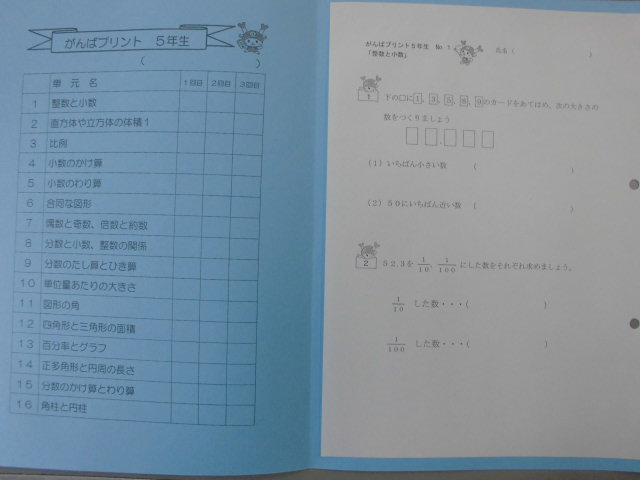 がんばプリント 5年生
( )
単元名 1回目 2回目 3回目
1 整数と小数
2 直方体や立方体の体積1
3 比例
4 小数のかけ算
5 小数のわり算
6 合同な図形
7 偶数と奇数、倍数と約数
8 分数と小数、整数の関係
9 分数のたし算とひき算
10 単位量あたりの大きさ
11 図形の角
12 四角形と三角形の面積
13 百分率とグラフ
14 正多角形と円周の長さ
15 分数のかけ算とわり算
16 角柱と円柱
がんばプリント5年生 No 1
「整数と小数」
氏名( )
1 下の□に1、3、5、8、9のカードをあてはめ、次の大きさの
数をつくりましょう
□□.□□□
(1)いちばん小さい数 ( )
(2)50にいちばん近い数 ( )
2 52.3を 1/10、1/100 にした数をそれぞれ求めましょう。
1/10 した数・・・( )
1/100 した数・・・( )